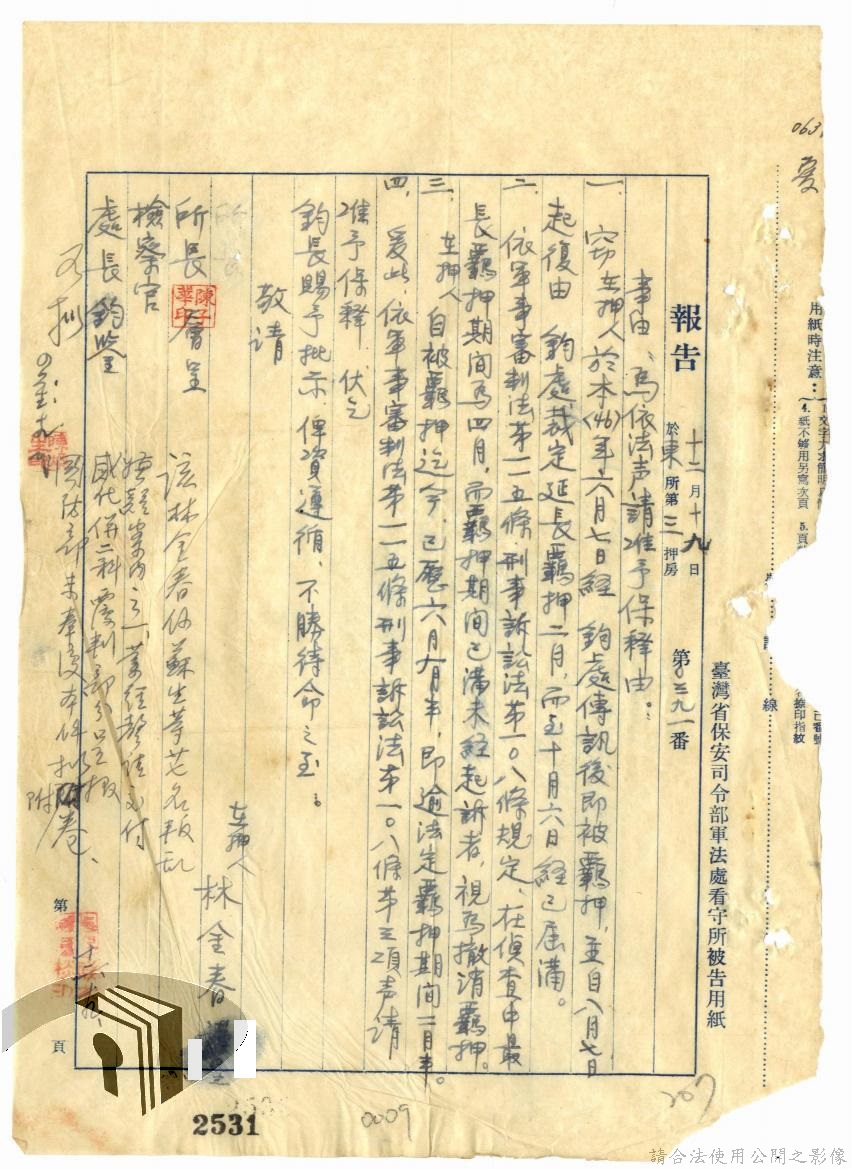 063
用紙時注意：
4.紙不够用另寫次頁
5.頁
捺印指紋
線
臺灣省保安司令部軍法處看守所被告用紙
報告
十二月十九日
於東所第三押房
第0三九一番
事由、為依法声請准予保釋由：
一、窃在押人於本(46)年六月七日経 鈞處傳訊後即被羈押，並自八月七日
起復由 鈞處裁定延長羈押二月，而至十月六日経已届滿。
二、依軍事審判法第一一五條刑事訴訟法第一〇八條規定、在偵查中最
長羈押期间為四月，而羈押期间已滿未経起訴者，視為撤消羈押。
三、在押人自被羈押迄今，已歷六月有半，即逾法定羈押期间二月半。
四、爰此，依軍事審判法第一一五條刑事訴訟法第一〇八條第三項声請
准予保釋，伏乞
鈞長賜予批示，俾資遵循，不勝待命之至。
敬請
所長
所長 層呈
陳子華印
檢察官
處長鈞鑒
在押人
林金春
該林金春係蘇生等廿名叛乱
嫌疑案內之一、業経
國防部未奉復本件擬附卷、
第 頁
2531
0009
207
請合法使用公開之影像